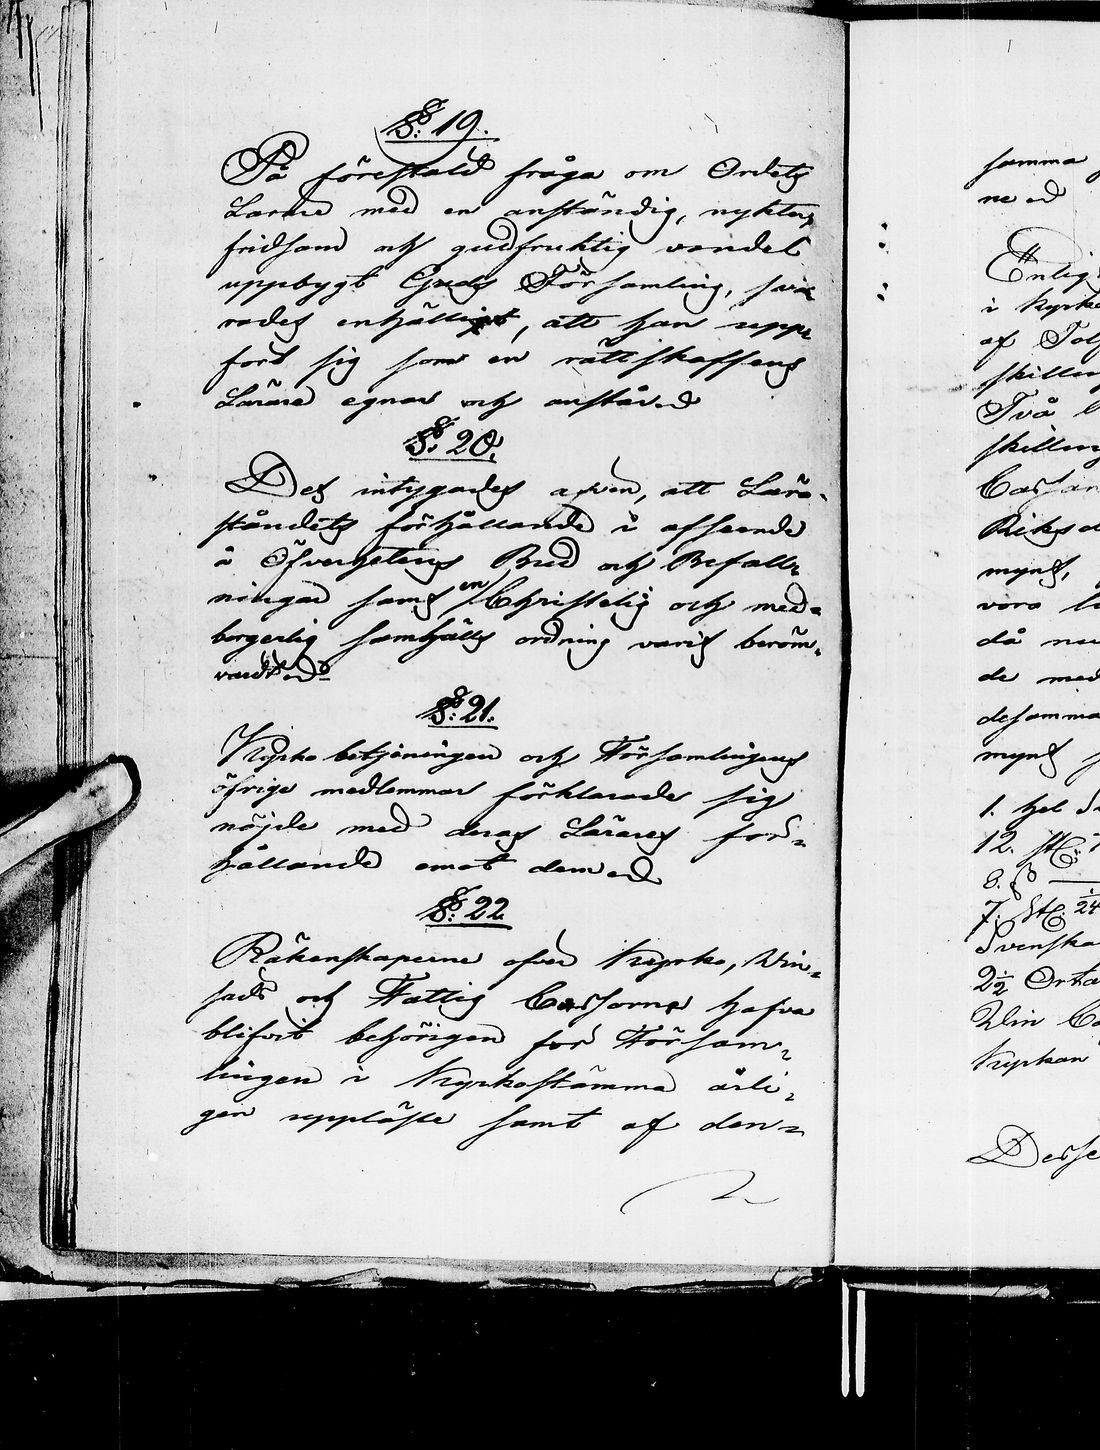 §: 19.
På förestald fråga om Ordets
Larare med en anständig, nykter,
fridsam och gudfruktig vandel
uppbygt Guds Församling, sva
rades enhälligt, att han upp-
ford sig som en rättskaffens
Lärare egnar och anstår
§: 20.
Des intygades afven, att Lära-
ståndets förhållande i afseende
å Öfverhetens Bud och Befall-
ningar samt en Christelig och med-
borgerlig samhälls ordning varit beröm-
§: 21.
Kyrko betjeningen och Församlingens
öfrige medlemmar förklarade sig
nöjde med deras Lärares för-
hållande emot dem
§: 22
Räkenskaperne ofver Kyrko, Vin-
sads och Fattig Cassorne hafva
blifvit behörigen for Försam-
lingen i Kyrkostämma årli-
gen uppläste samt af den-
samma
Enlig
i Kyrko
af Tolf
skilling
Två
skilling
Cassan
Riksd
mynt,
vara
då
de med
desamma
mynt
1. hel
12.
8.
7. 1/24
Svenska
2 1/2 Orta
Vin
Kyrkan
Desse